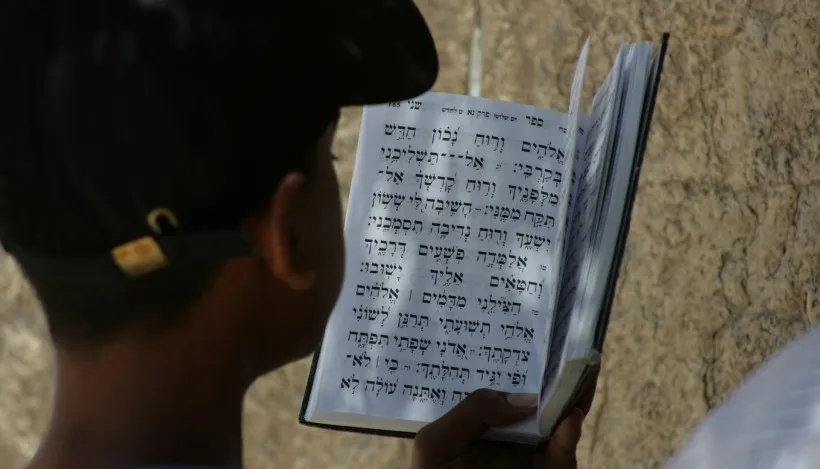 ספר יום שלישי פרק נא לחדש שני 165
אֱלֹהִים וְרוּחַ נָכוֹן חַדֵּשׁ
בְּקִרְבִּי: אַל־־־תַּשְׁלִיכֵנִי
מִלְּפָנֶיךָ וְרוּחַ קָדְשְׁךָ אַל־
תִּקַּח מִמֶּנִּי: הָשִׁיבָה לִּי שְׂשׂוֹן
יִשְׁעֶךָ וְרוּחַ נְדִיבָה תִסְמְכֵנִי:
אֲלַמְּדָה פֹשְׁעִים דְּרָכֶיךָ
וְחַטָּאִים אֵלֶיךָ יָשׁוּבוּ:
הַצִּילֵנִי מִדָּמִים | אֱלֹהִים
אֱלֹהֵי תְּשׁוּעָתִי תְּרַנֵּן לְשׁוֹנִי
צִדְקָתֶךָ: אֲדֹנָי שְׂפָתַי תִּפְתָּח
וּפִי יַגִּיד תְּהִלָּתֶךָ: כִּי | לֹא־
וְאֶתֵּנָה עוֹלָה לֹא